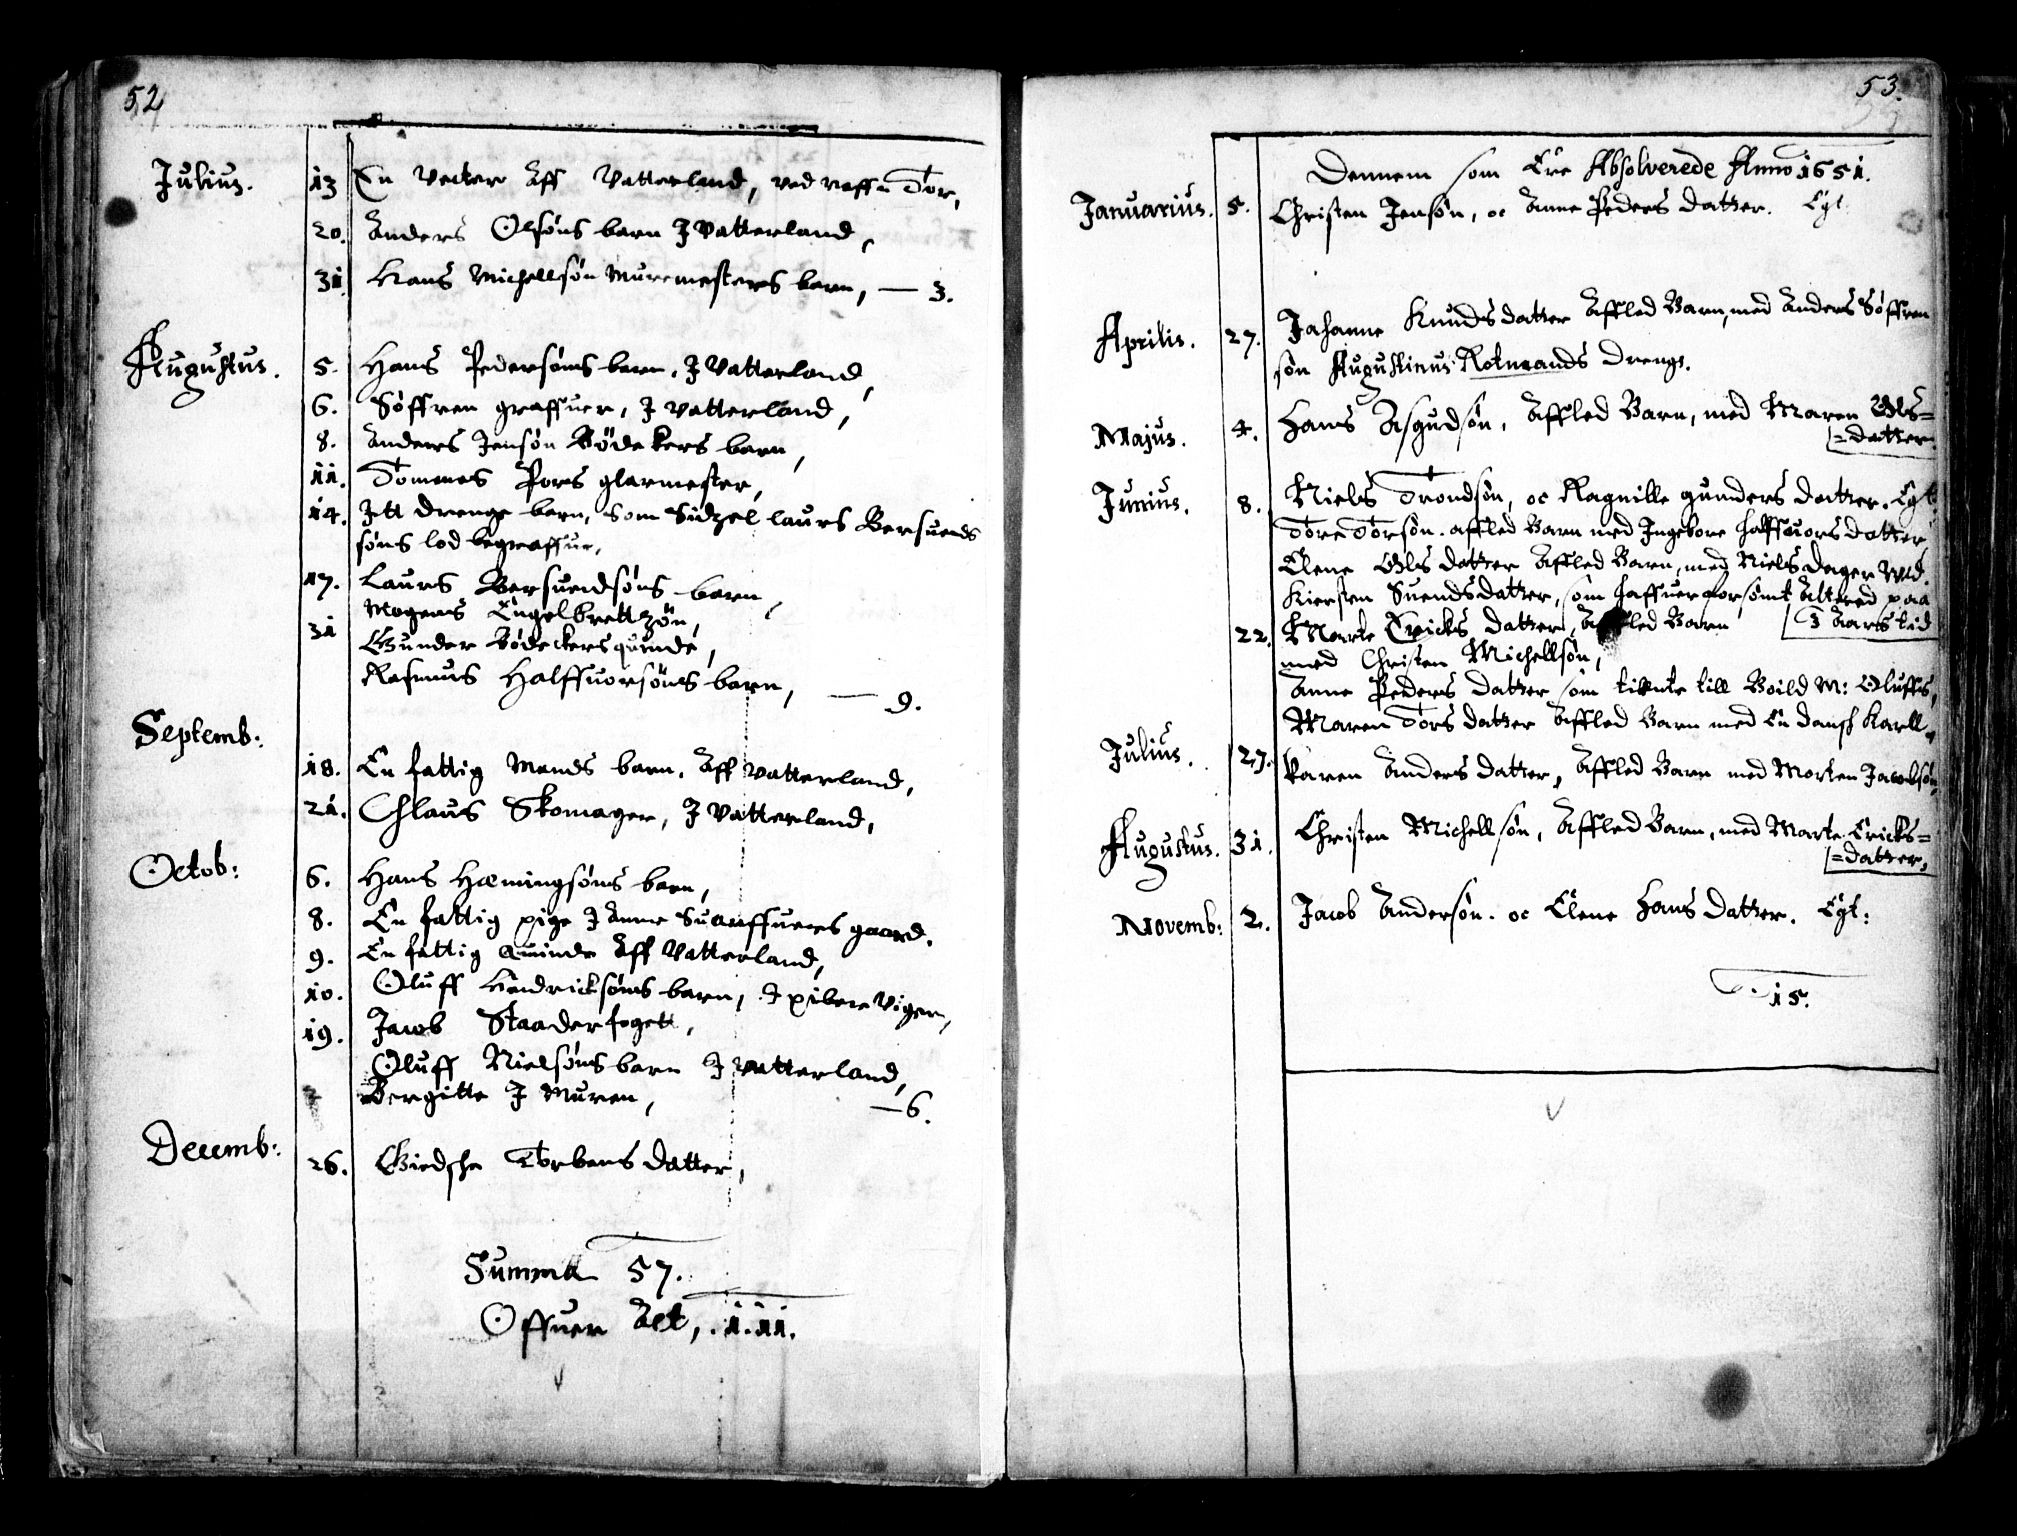 52
Julius.
13 En Vecter Aff Vatterland, ved raffn Tor,
20. Anders Olsøns barn J Vatterland,
31. Hans Michellsøn Muremesters barn, — 3.
Augustus.
5. Hans Pedersøns barn, J Vatterland,
6. Søffren graffuer, J Vatterland,
8. Anders Jensøn Bødekers barn,
11. Tommes Pors glarmester,
14. Itt drenge barn, som Sidzel laurs Bersuends
søns lod begraffue,
17. Laurs Bersuendsøns barn,
Mogens Engelbrettzøn,
31 Gunder Bødeckers quinde,
Rasmus Halffuorsøns barn, — 9.
Septemb:
18. En fattig Mands barn, Aff Vatterland,
21. Chlaus Skomager, J Vatterland,
Octob:
6. Hans Hemingsøns barn,
8. En fattig pige J Anne gaard.
9. En fattig quinde Aff Vatterland,
10. Oluff Hendricksøns barn, J pibere Vigen,
19. Jacob Staaderfogett,
Oluff Nielsøns barn J Vatterland,
Bergitte J Muren, — 6.
Decemb:
26. Giedsche Torbens datter,
Summa 57.
Offuer Alt, .1.11.
53.
Dennem som Ere Absolverede Anno 1651.
Januarius. 5. Christen Jensøn, oc Anne Peders datter. Egt.
Aprilis. 27. Johanne Knuds datter Affled Barn, med Anders Søffren
søn Augustinus Rotmands dreng.
Majus. 4. Hans Asgudsøn, Affled Barn, med Maren Ols=
=datter.
Junius. 8. Niels Trondsøn, oc Ragnille gunders datter. Egt.
Tore Torsøn. affled Barn med Ingebore halffuors datter
Elene Ols datter Affled Barn, med Niels Dager Wed.
Kiersten Suends datter, som haffuer forsømt Altered paa
3 Aars tid
22. Marte Ericks datter, Affled Barn
med Christen Michellsøn,
Anne Peders datter som tiente till Boild M: Oluffs,
Maren Tors datter Affled Barn med En dansk Karll.
Julius. 27. Karen Anders datter, Affled Barn med Morten Jacobsøn,
Augustus. 31. Christen Michellsøn, Affled Barn, med Marte Ericks=
=datter,
Novemb: 2. Jacob Andersøn. oc Elene Hans datter. Egt:
15.